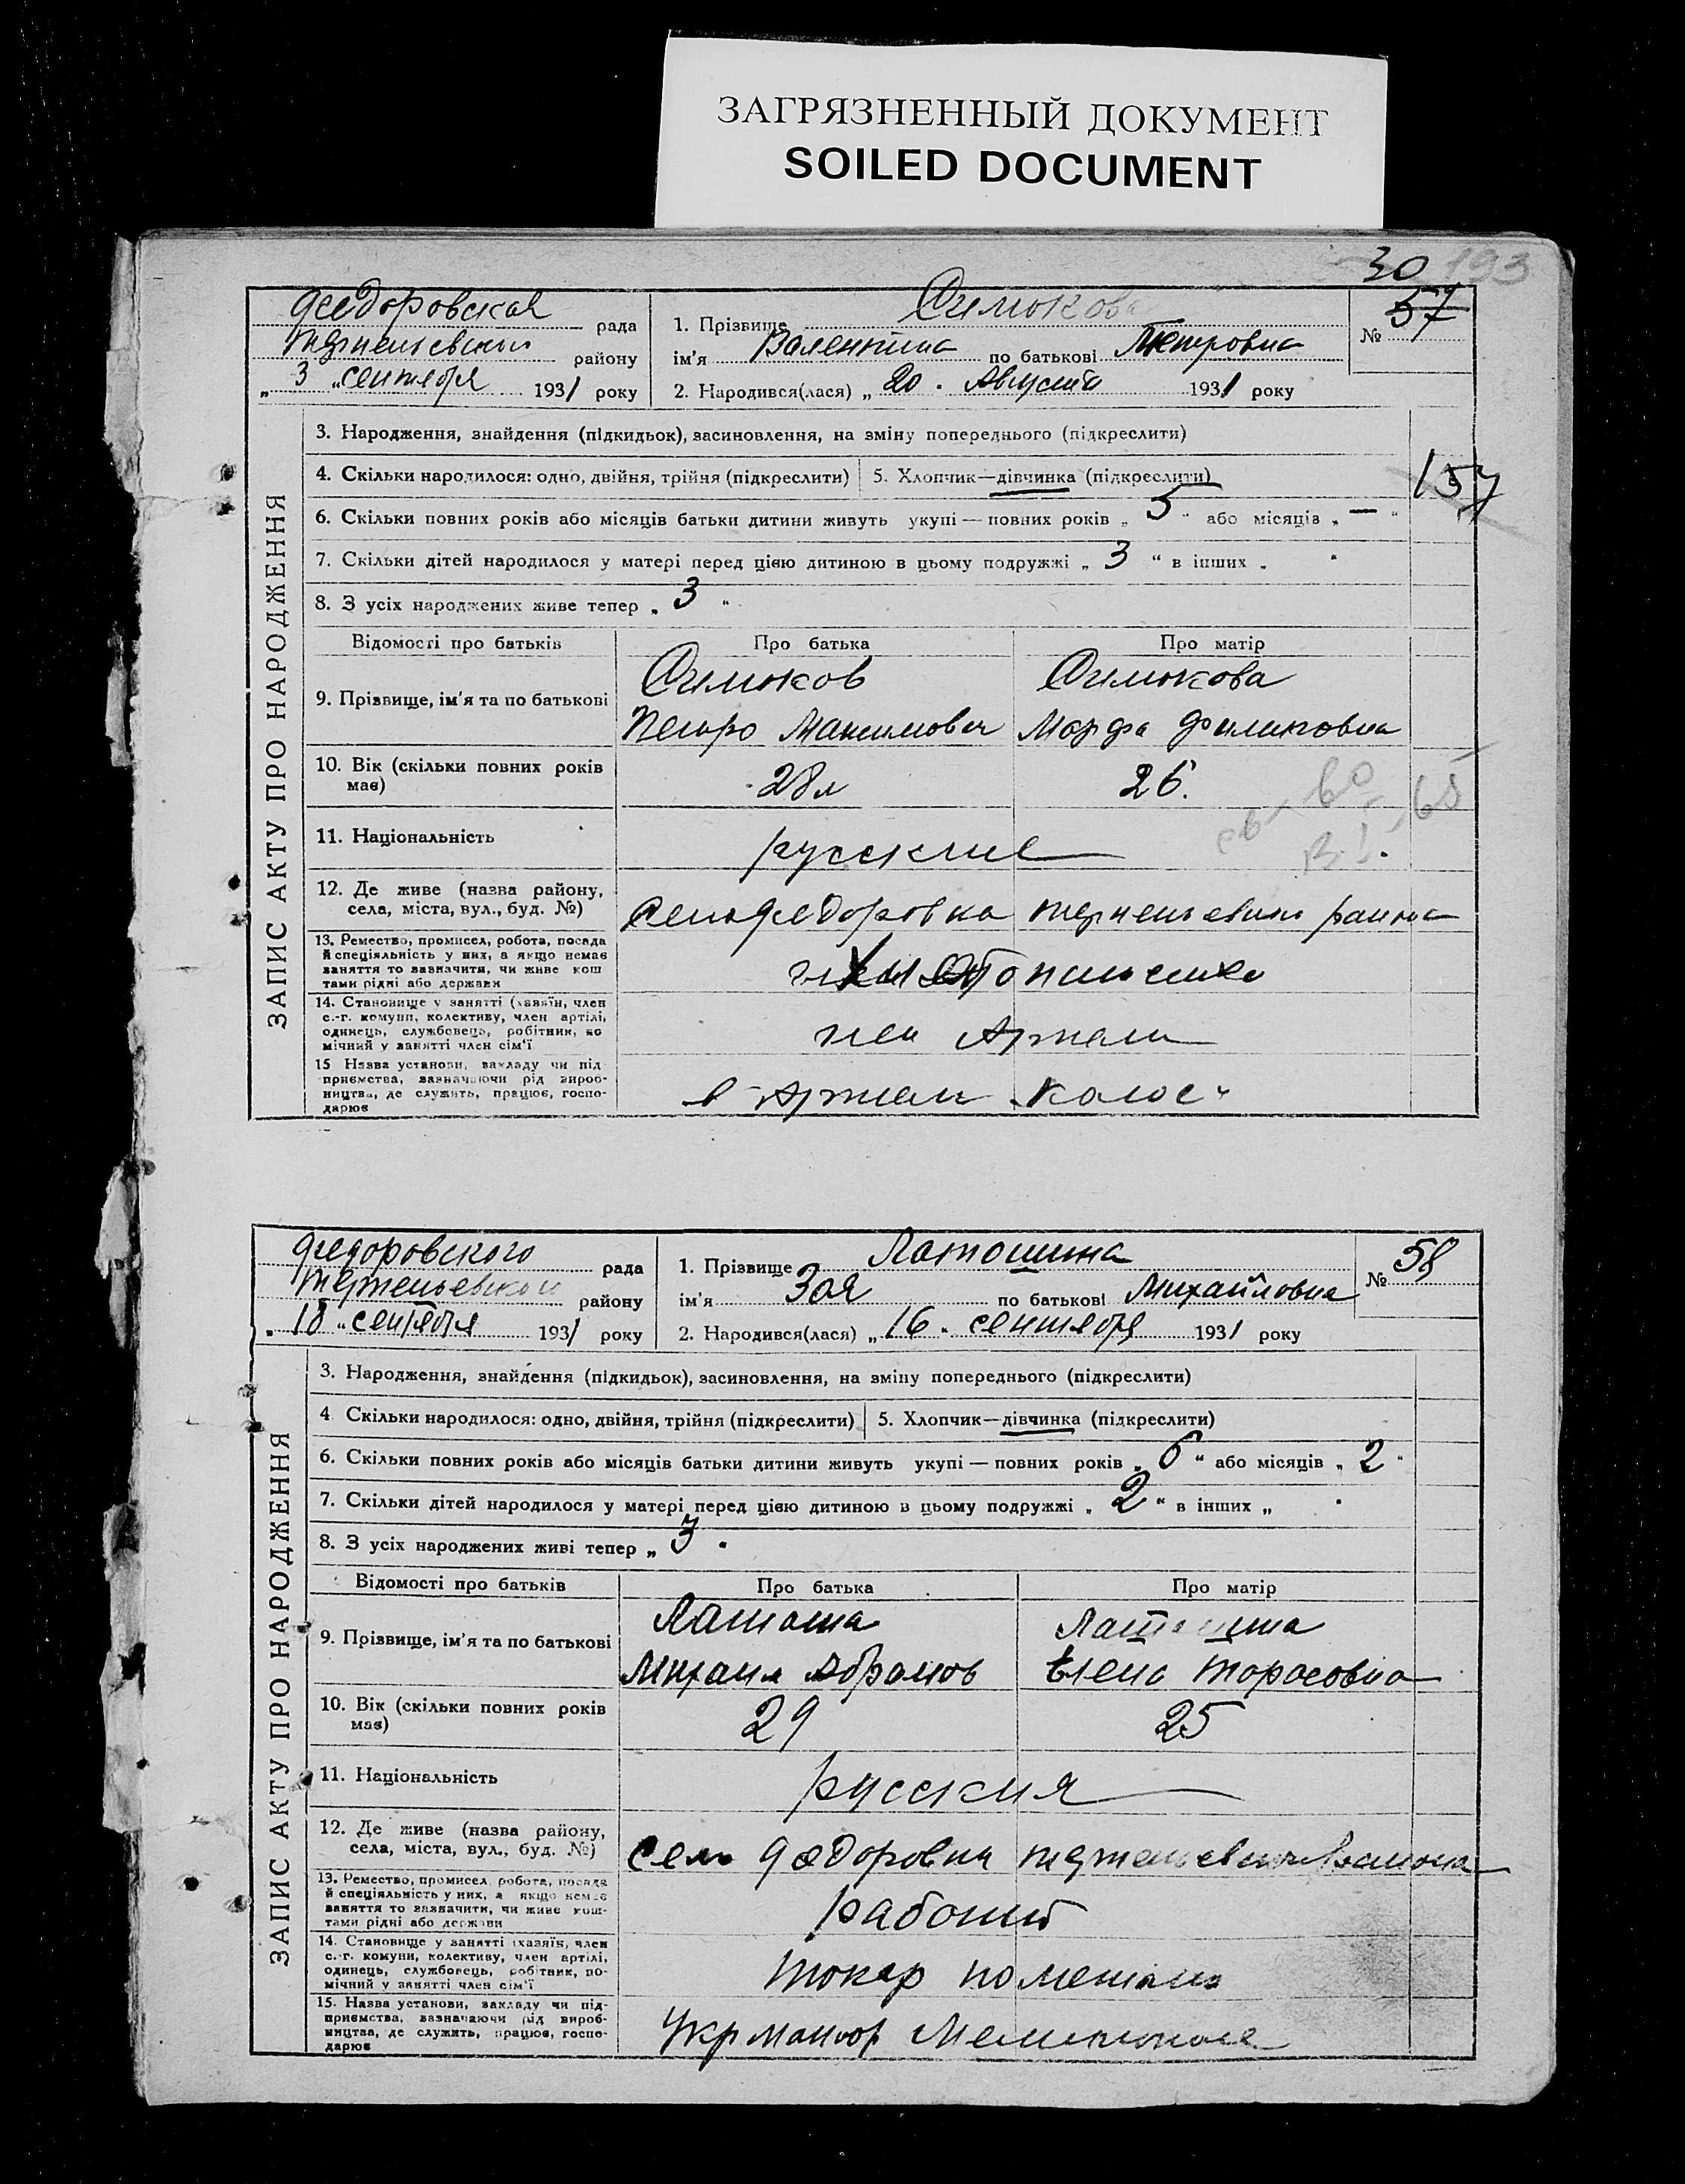 ЗАГРЯЗНЕННЫЙ ДОКУМЕНТ
SOILED DOCUMENT
30 193
Федоровская рада
району
„ 3 „ сентября 1931 року
1. Прізвище Симокова
ім'я Валентина по батькові Петровна
2. Народився(лася) „ 20 . Августа 1931 року
№ 57
ЗАПИС АКТУ ПРО НАРОДЖЕННЯ
3. Народження, знайдення (підкидьок), засиновлення, на зміну попереднього (підкреслити)
4. Скільки народилося: одно, двійня, трійня (підкреслити) 5. Хлопчик—дівчинка (підкреслити)
157
6. Скільки повних років або місяців батьки дитини живуть укупі — повних років „ 5 " або місяців „ — "
7. Скільки дітей народилося у матері перед цією дитиною в цьому подружжі „ 3 " в інших „ "
8. З усіх народжених живе тепер „ 3 "
Відомості про батьків Про батька Про матір
9. Прізвище, ім'я та по батькові
Симоков Симокова
Петро Максимович Марфа Филиповна
10. Вік (скільки повних років має)
28 л 26.
11. Національність
русские
12. Де живе (назва району,
села, міста, вул., буд. №)
Село Федоровка района
13. Ремество, промисел, робота, посада
й спеціяльність у них, а якщо немає
заняття то зазначити, чи живе кош
тами рідні або держави
14. Становище у занятті (хазяїн, член
с.-г. комуни, колективу, член артілі,
одинець, службовець, робітник, по
мічний у занятті член сім'ї
член Артели
15 Назва установи, закладу чи під
приємства, зазначаючи рід вироб-
ництва, де служить, працює, госпо-
дарює
в Артели „Колос"
Федоровского рада
району
„ 18 „ сентября 1931 року
1. Прізвище Латошина
ім'я Зоя по батькові Михайловна
2. Народився(лася) „ 16 . сентября 1931 року
№ 58
ЗАПИС АКТУ ПРО НАРОДЖЕННЯ
3. Народження, знайдення (підкидьок), засиновлення, на зміну попереднього (підкреслити)
4 Скільки народилося: одно, двійня, трійня (підкреслити) 5. Хлопчик—дівчинка (підкреслити)
6. Скільки повних років або місяців батьки дитини живуть укупі — повних років „ 6 " або місяців „ 2 "
7. Скільки дітей народилося у матері перед цією дитиною в цьому подружжі „ 2 " в інших „ "
8. З усіх народжених живі тепер „ 3 "
Відомості про батьків Про батька Про матір
9. Прізвище, ім'я та по батькові
Михаил Абрамов Елена Торасовна
10. Вік (скільки повних років
має)
29 25
11. Національність
русския
12. Де живе (назва району,
села, міста, вул., буд. №)
Село Федоровки района
13. Ремество, промисел, робота, посада
й спеціяльність у них, а якщо немає
заняття то зазначити, чи живе кош-
тами рідні або держави
рабочий
14. Становище у занятті (хазяїн, член
с.-г. комуни, колективу, член артілі,
одинець, службовець, робітник, по-
мічний у занятті член сім'ї
токар по металу
15. Назва установи, закладу чи під-
приємства, зазначаючи рід вироб-
ництва, де служить, працює, госпо-
дарює
Мелитополе